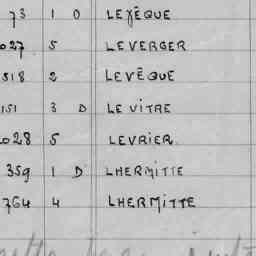 73 1 0 LEVÊQUE
027 5 LEVERGER
518 2 LEVÊQUE
151 3 D LE VITRE
028 5 LEVRIER
359 1 D LHERMITTE
764 4 LHERMITTE